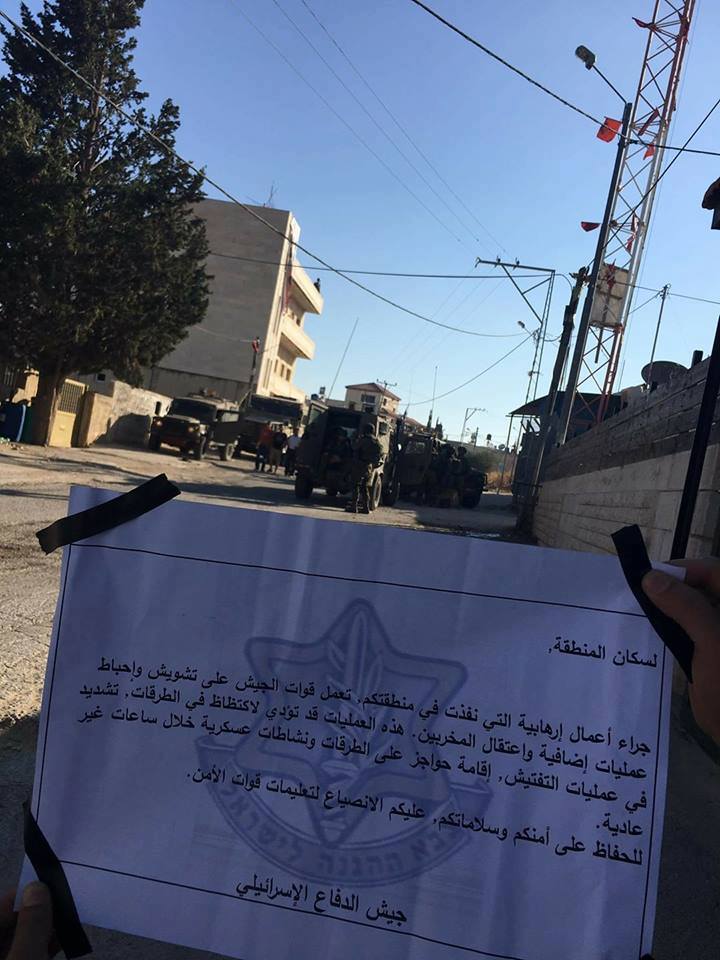 لسكان المنطقة,
جراء أعمال إرهابية التي نفذت في منطقتكم, تعمل قوات الجيش على تشويش وإحباط
عمليات إضافية واعتقال المخربين. هذه العمليات قد تؤدي لاكتظاظ في الطرقات, تشديد
في عمليات التفتيش, إقامة حواجز على الطرقات ونشاطات عسكرية خلال ساعات غير
عادية.
للحفاظ على أمنكم وسلاماتكم, عليكم الانصياع لتعليمات قوات الأمن.
צבא ההגנה לישראל
جيش الدفاع الإسرائيلي